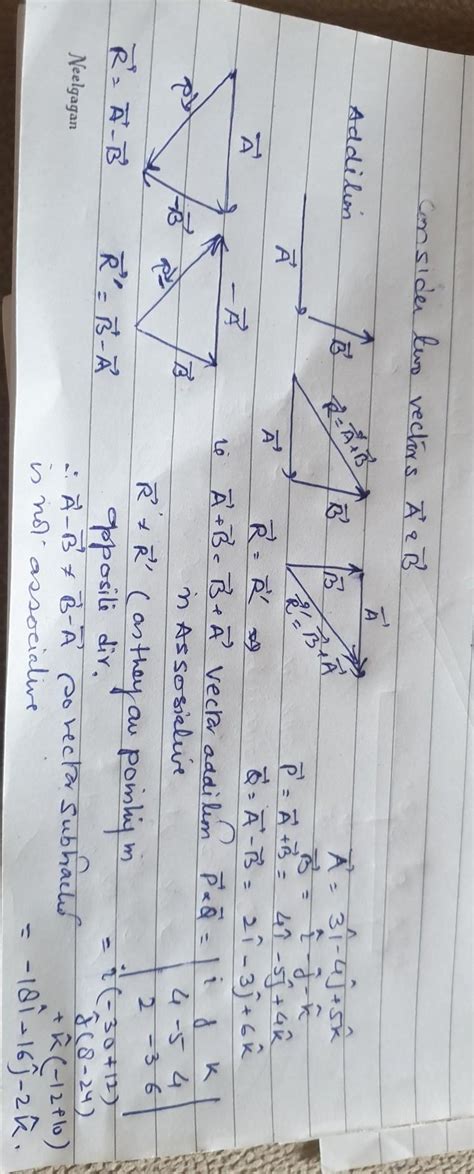 Consider two vectors A⃗ & B⃗
Addition
A⃗
B⃗
R⃗ = A⃗+B⃗
B⃗
A⃗
A⃗
B⃗
R⃗' = B⃗ + A⃗
R⃗ = R⃗' so
ie A⃗+B⃗ = B⃗+A⃗ vector addition
is Assosiative
A⃗
R⃗
-B⃗
-A⃗
R⃗'
B⃗
R⃗ = A⃗-B⃗
R⃗' = B⃗-A⃗
R⃗ ≠ R⃗' (as they are pointing in
opposite dir.
∴ A⃗-B⃗ ≠ B⃗-A⃗ so vector subtraction
is not associative
Neelgagan
A⃗ = 3î-4ĵ+5k̂
B⃗ = î-ĵ-k̂
P⃗ = A⃗+B⃗ = 4î-5ĵ+4k̂
Q⃗ = A⃗-B⃗ = 2î-3ĵ+6k̂
P⃗×Q⃗ = | i j k
4 -5 4
2 -3 6 |
= î(-30+12)
ĵ(8-24)
+k̂(-12+10)
= -18î-16ĵ-2k̂.